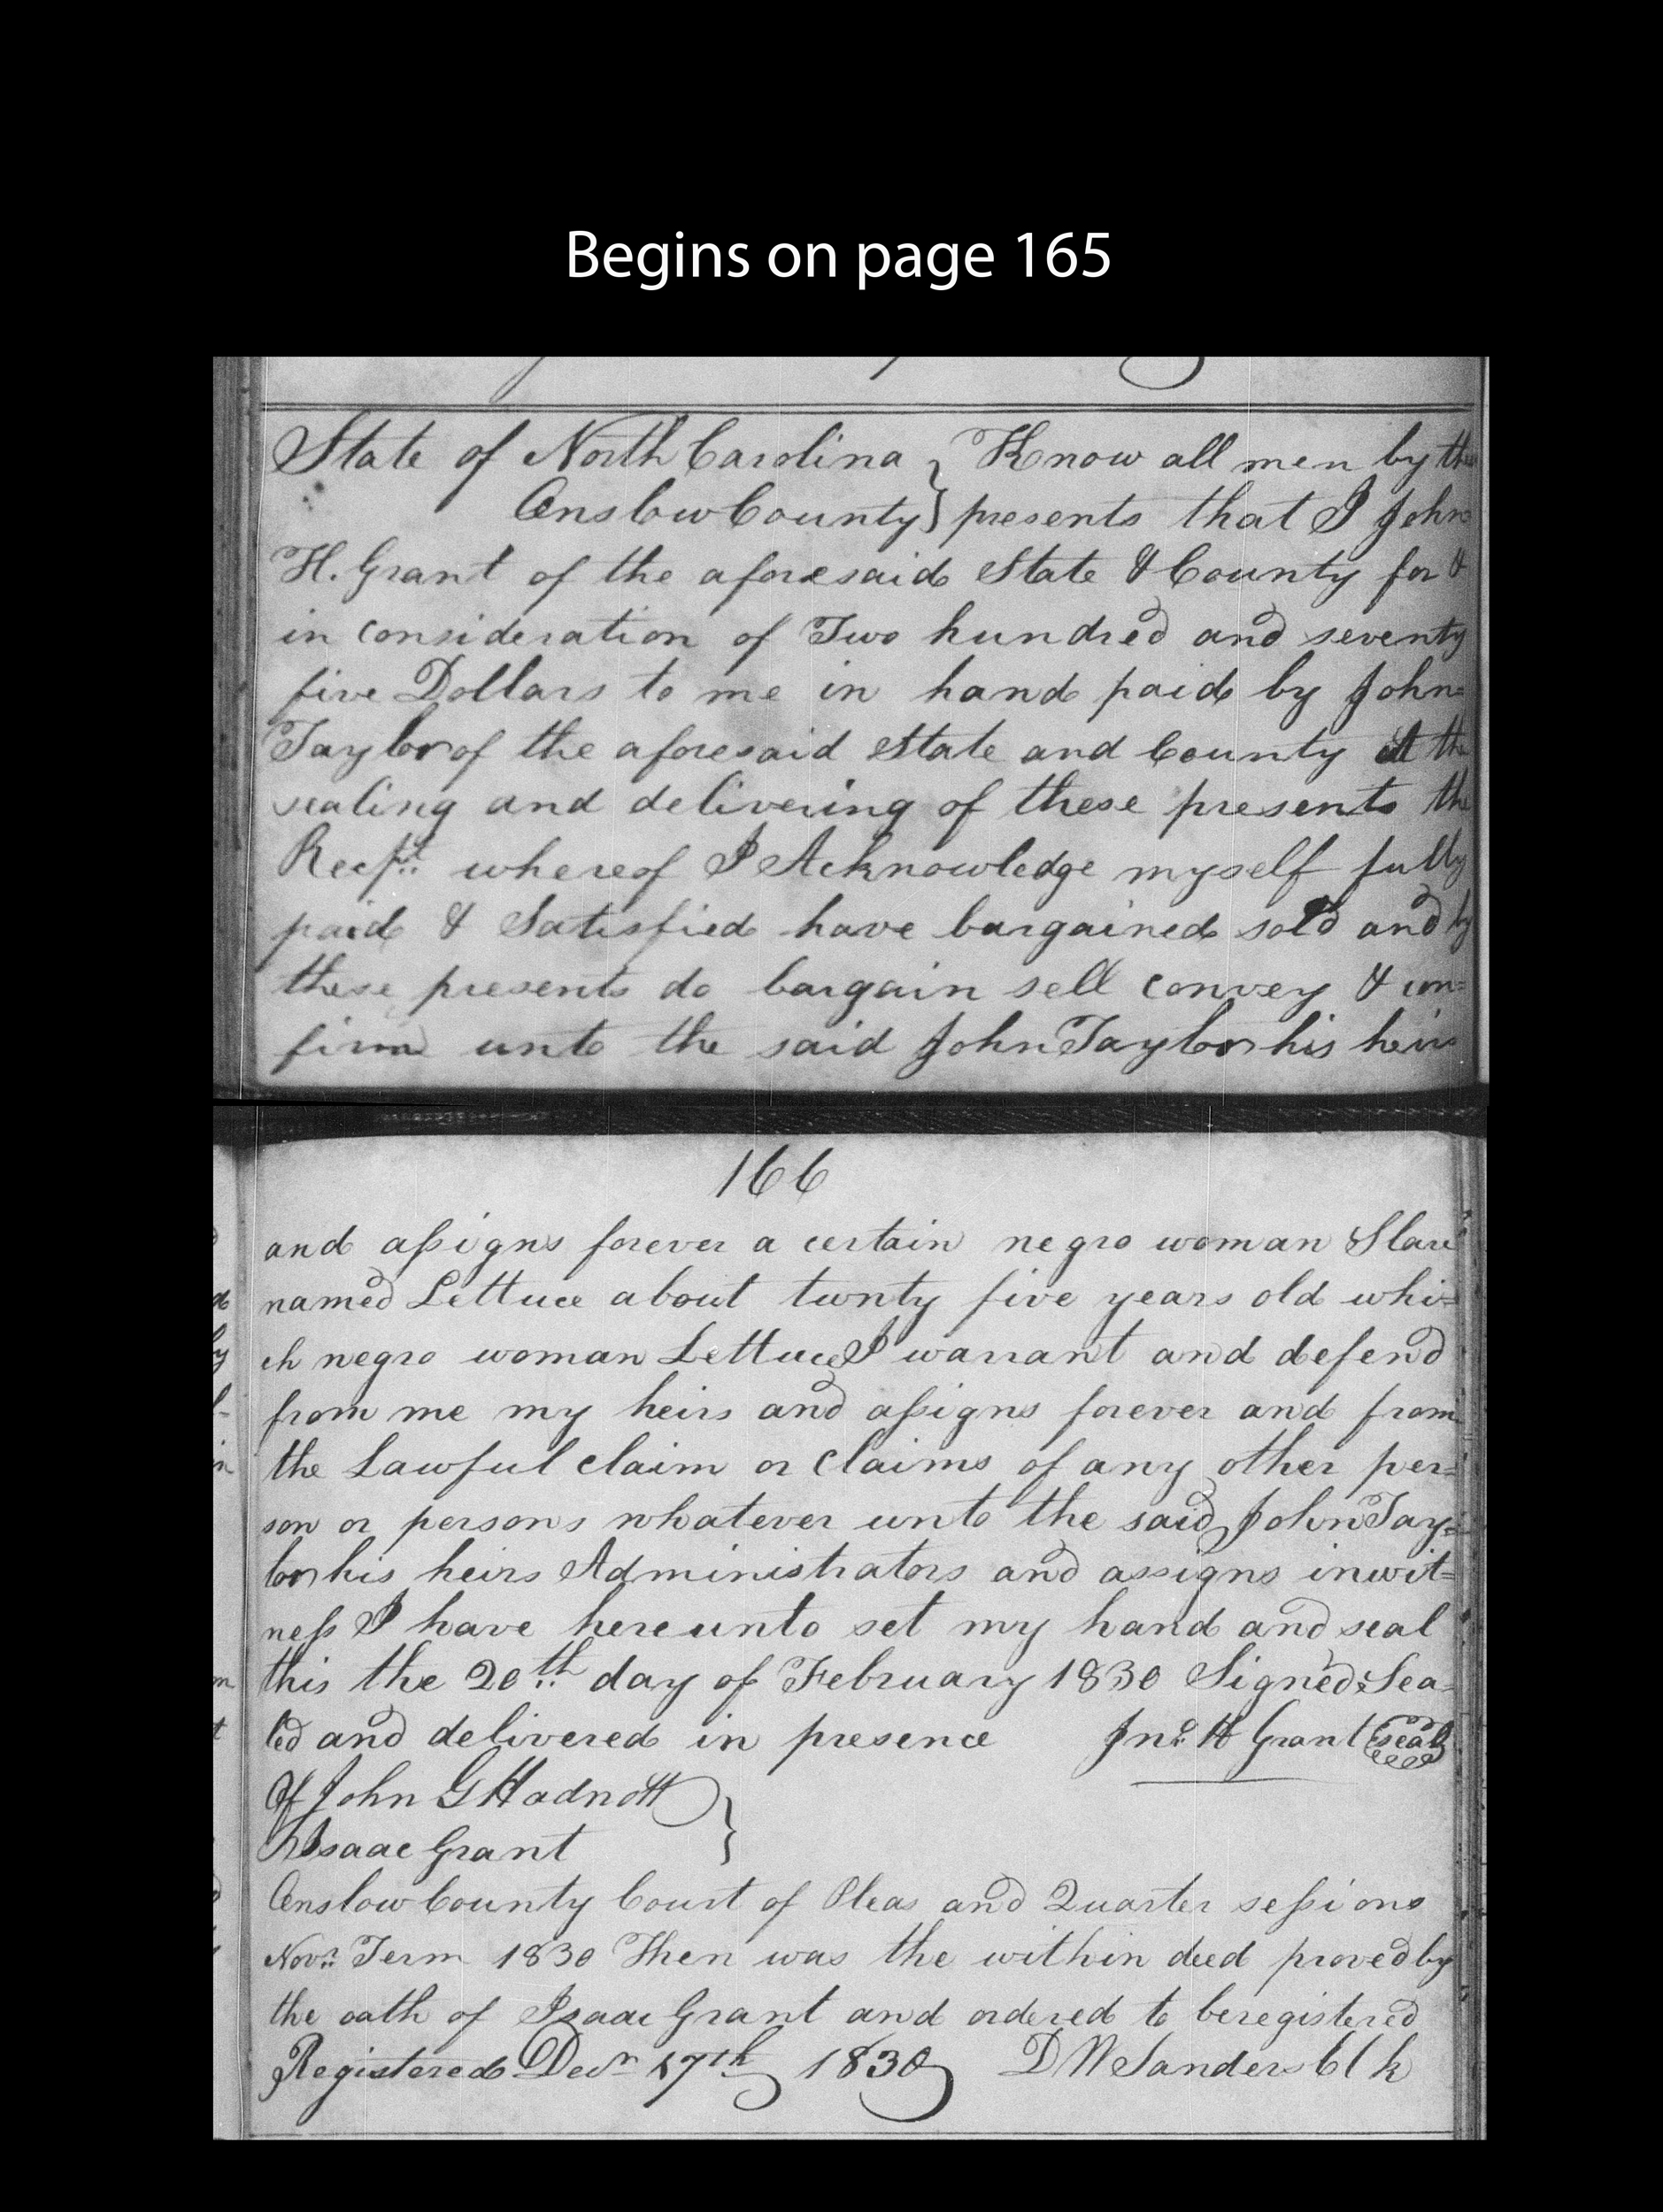 Begins on page 165
State of North Carolina } Know all men by the
Onslow County } presents that I John
H. Grant of the aforesaid State & County for &
in consideration of Two hundred and seventy
five Dollars to me in hand paid by John=
Taylor of the aforesaid State and County at the
sealing and delivering of these presents the
Recpt. whereof I Acknowledge myself fully
paid & Satisfied have bargained sold and by
these presents do bargain sell convey & con=
firm unto the said John Taylor his heirs
166
and assigns forever a certain negro woman Slave
named Lettuce about twnty five years old whi=
ch negro woman Lettuce I warrant and defend
from me my heirs and assigns forever and from
the Lawful claim or claims of any other per=
son or persons whatever unto the said John Tay=
lor his heirs Administrators and assigns in wit=
ness I have hereunto set my hand and seal
this the 20th day of February 1830 Signed & Sea=
led and delivered in presence Jno. H Grant seal
Of John G Hadnott }
Isaac Grant
Onslow County Court of Pleas and Quarter sessions
Novr. Term 1830 Then was the within deed proved by
the oath of Isaac Grant and ordered to be registered
Registered Decr 17th 1830 D W Sanders Clk